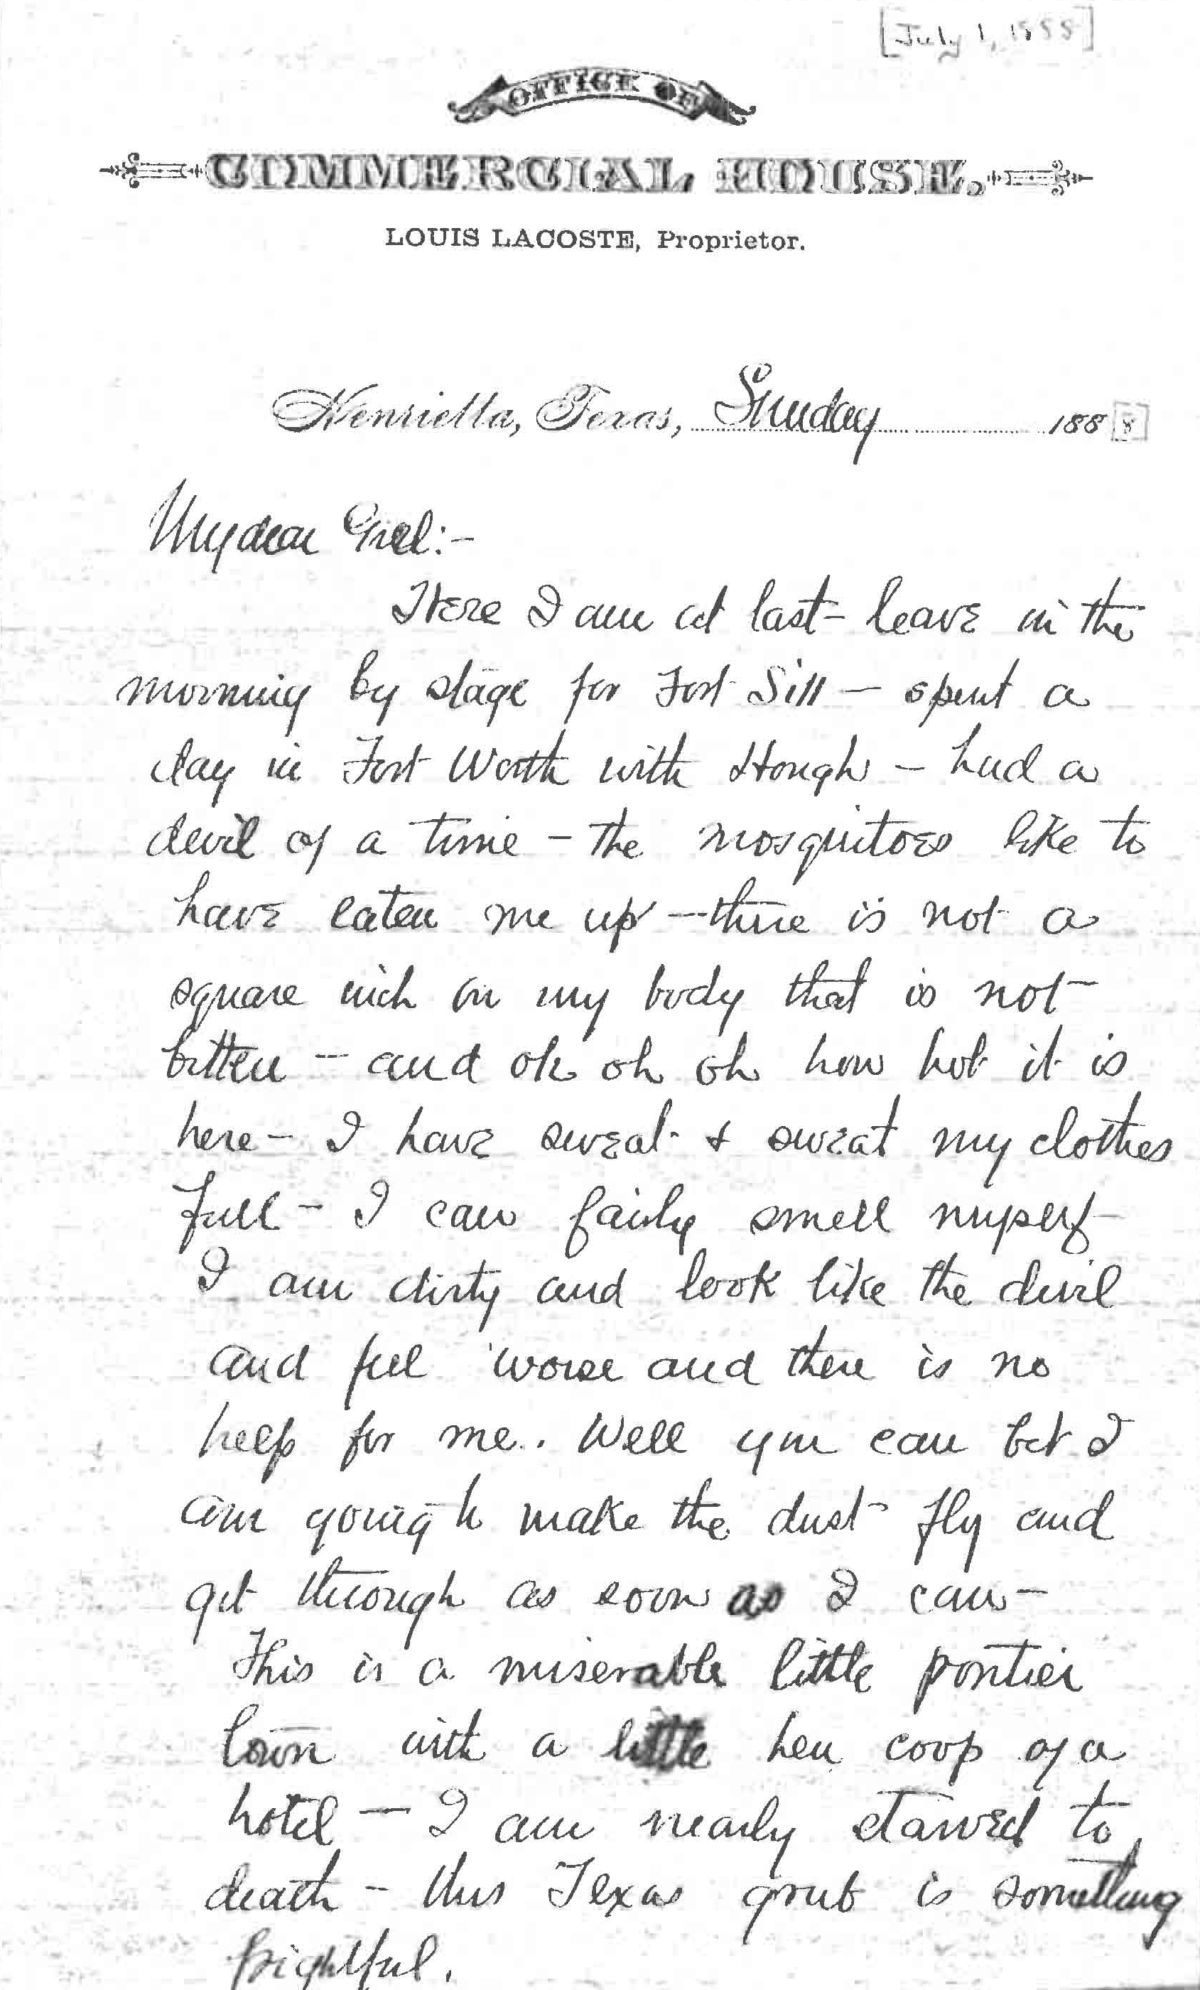 [July 1, 1888]
OFFICE OF
COMMERCIAL HOUSE.
LOUIS LACOSTE, Proprietor.
Henrietta, Texas, Sunday 188[8]
My dear Girl:-
Here I am at last - leave in the
morning by stage for Fort Sill - spent a
day in Fort Worth with Hough - had a
devil of a time - the mosquitoes like to
have eaten me up - there is not a
square inch on my body that is not
bitten - and oh oh oh how hot it is
here - I have sweat & sweat my clothes
full - I can fairly smell myself -
I am dirty and look like the devil
and feel worse and there is no
help for me. Well you can bet I
am going to make the dust fly and
get through as soon as I can -
This is a miserable little frontier
town with a little hen coop of a
hotel - I am nearly starved to
death - this Texas grub is something
frightful.